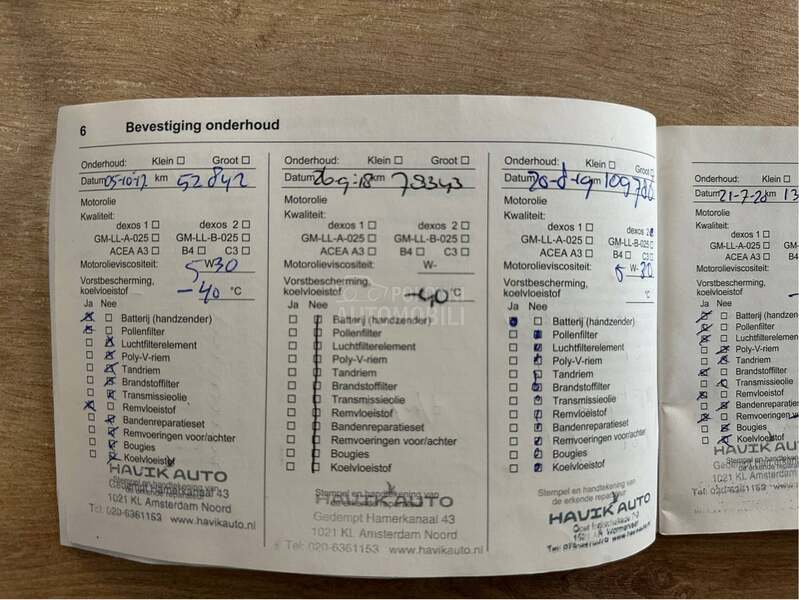 6 Bevestiging onderhoud
Onderhoud: Klein ☐ Groot ☐
Datum 05-10-17 km 52842
Motorolie
Kwaliteit:
dexos 1 ☐ dexos 2 ☐
GM-LL-A-025 ☐ GM-LL-B-025 ☐
ACEA A3 ☐ B4 ☐ C3 ☐
Motorolieviscositeit: 5 W-30
Vorstbescherming,
koelvloeistof -40 °C
Ja Nee
Batterij (handzender)
Pollenfilter
Luchtfilterelement
Poly-V-riem
Tandriem
Brandstoffilter
Transmissieolie
Remvloeistof
Bandenreparatieset
Remvoeringen voor/achter
Bougies
Koelvloeistof
HAVIK AUTO
Gedempt Hamerkanaal 43
1021 KL Amsterdam Noord
Tel: 020-6361153 www.havikauto.nl
Onderhoud: Klein ☐ Groot ☐
Datum 26-9-18 km 79343
Motorolie
Kwaliteit:
dexos 1 ☐ dexos 2 ☐
GM-LL-A-025 ☐ GM-LL-B-025 ☐
ACEA A3 ☐ B4 ☐ C3 ☐
Motorolieviscositeit: W-
Vorstbescherming,
koelvloeistof -40 °C
Ja Nee
Batterij (handzender)
Pollenfilter
Luchtfilterelement
Poly-V-riem
Tandriem
Brandstoffilter
Transmissieolie
Remvloeistof
Bandenreparatieset
Remvoeringen voor/achter
Bougies
Koelvloeistof
Stempel en handtekening van
HAVIK AUTO
Gedempt Hamerkanaal 43
1021 KL Amsterdam Noord
Tel: 020-6361153 www.havikauto.nl
Onderhoud: Klein ☐ Groot ☐
Datum 20-8-19 km
Motorolie
Kwaliteit:
dexos 1 ☐ dexos 2
GM-LL-A-025 ☐ GM-LL-B-025 ☐
ACEA A3 ☐ B4 ☐ C3 ☐
Motorolieviscositeit: W-
Vorstbescherming,
koelvloeistof °C
Ja Nee
Batterij (handzender)
Pollenfilter
Luchtfilterelement
Poly-V-riem
Tandriem
Brandstoffilter
Transmissieolie
Remvloeistof
Bandenreparatieset
Remvoeringen voor/achter
Bougies
Koelvloeistof
Stempel en handtekening van
de erkende reparateur
HAVIK AUTO
www.havikauto.nl
Onderhoud: Klein ☐
Datum 21-7-20 km 13
Motorolie
Kwaliteit:
dexos 1 ☐
GM-LL-A-025 ☐
ACEA A3 ☐
Motorolieviscositeit:
Vorstbescherming,
koelvloeistof
Ja Nee
Batterij (hand
Pollenfilter
Luchtfilterele
Poly-V-riem
Tandriem
Brandstoffilte
Transmissieo
Remvloeistof
Bandenrepar
Remvoeringen
Bougies
Koelvloeistof
HAVIK
Gedempt
1021 KL Am
Tel: 020-6361153 w
POLOVNI
AUTOMOBILI